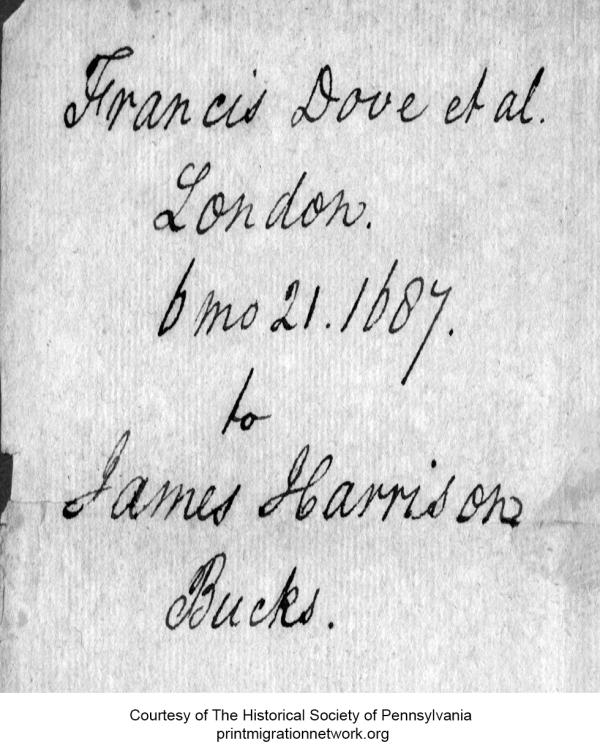 Francis Dove et al.
London.
6 mo 21. 1687.
to
James Harrison
Bucks.
Courtesy of The Historical Society of Pennsylvania
printmigrationnetwork.org